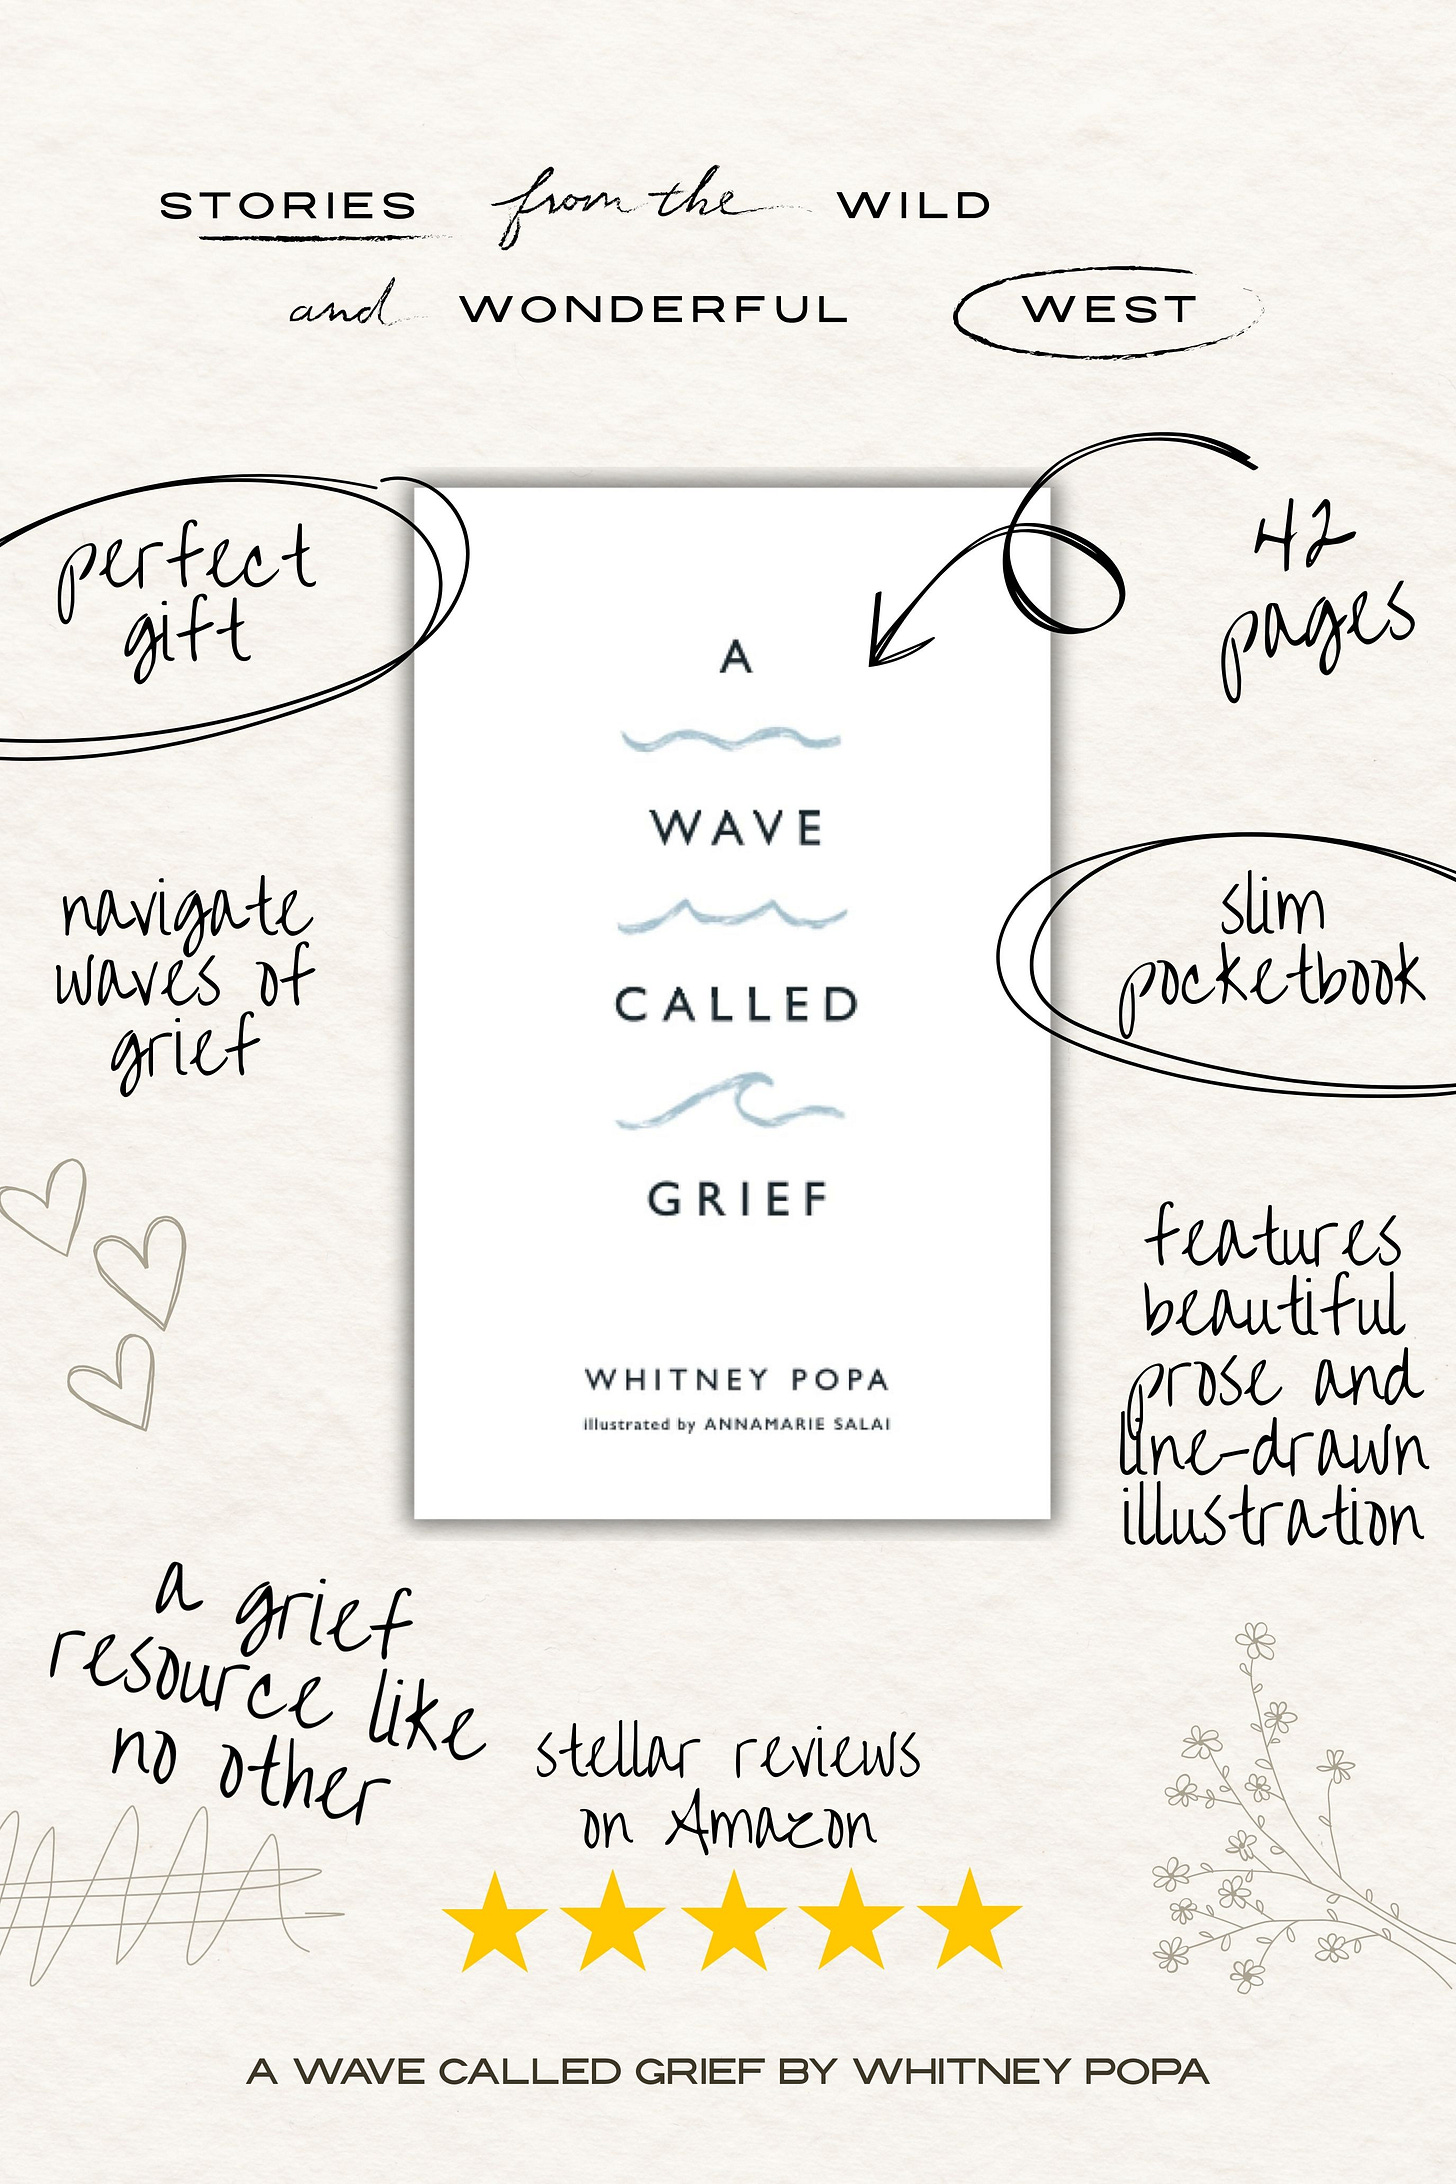 STORIES from the WILD
and WONDERFUL WEST
perfect
gift
42
pages
A
WAVE
CALLED
GRIEF
WHITNEY POPA
illustrated by ANNAMARIE SALAI
navigate
waves of
grief
slim
pocketbook
features
beautiful
prose and
line-drawn
illustration
a grief
resource like
no other
stellar reviews
on Amazon
A WAVE CALLED GRIEF BY WHITNEY POPA